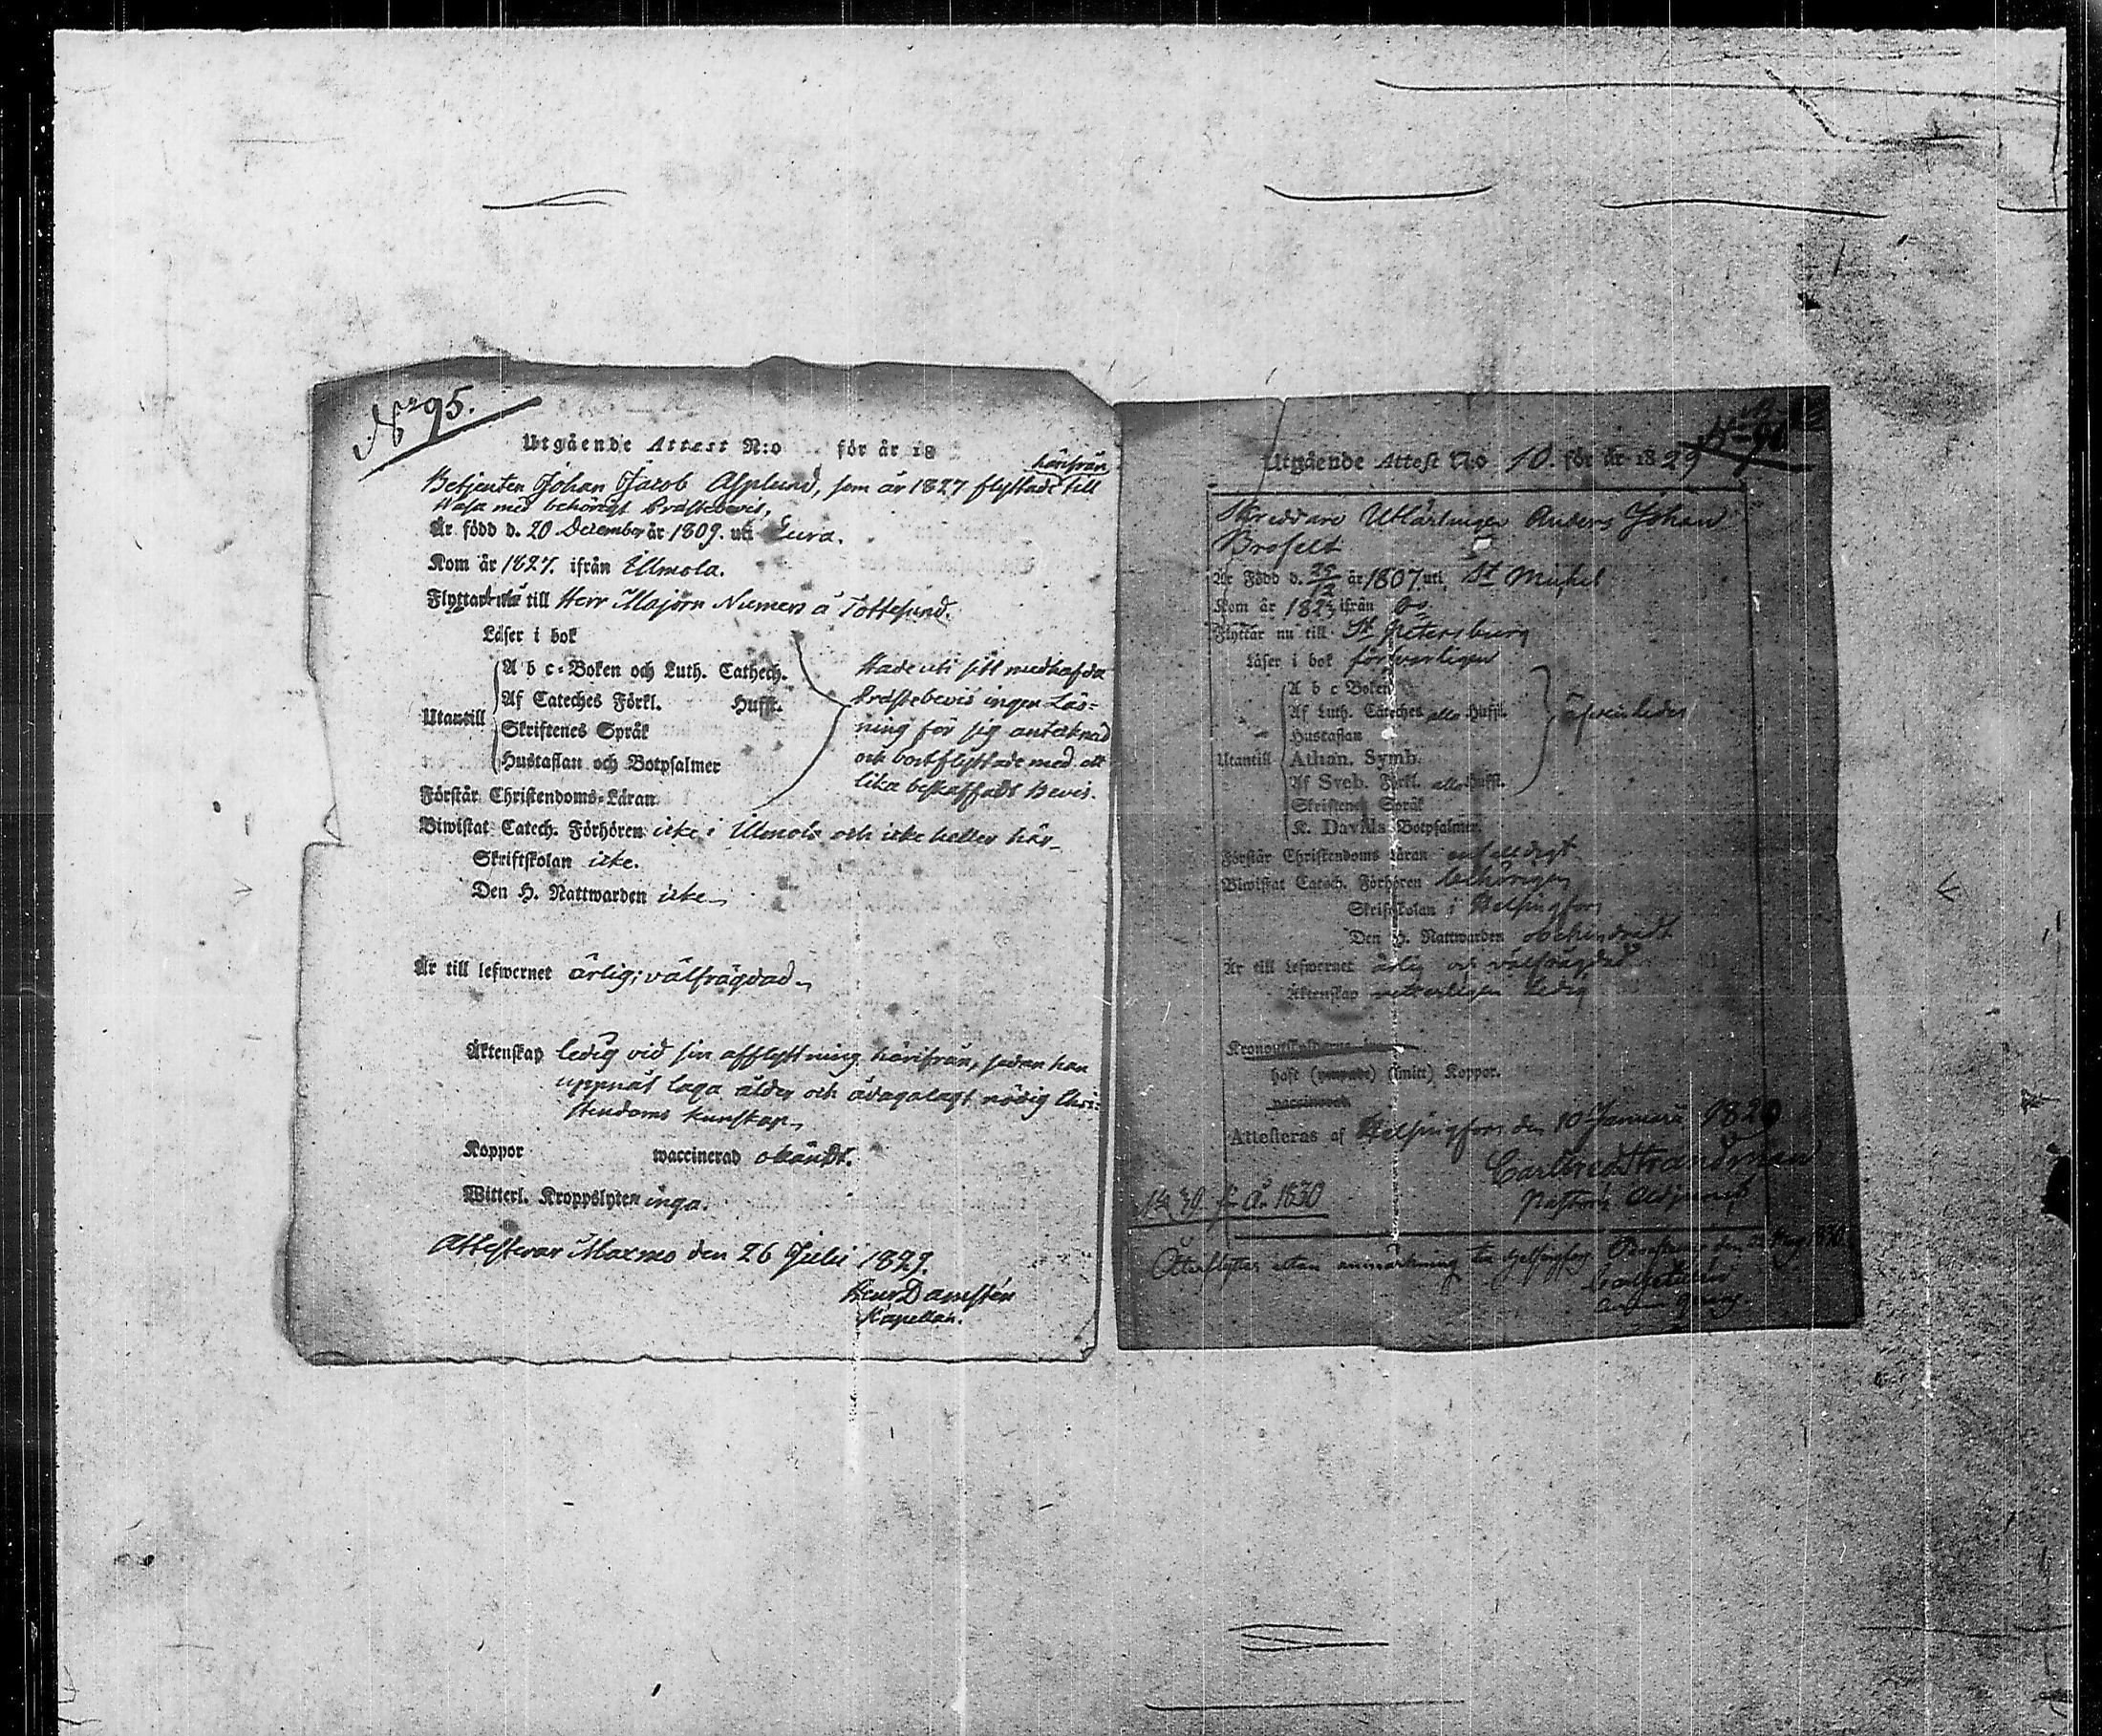 No 95.
Utgående Attest N:o för år 18
härifrån
Betjenten Johan Jacob Asplund, som år 1827 flyttade till
Wasa med behörigt Prästebevis,
Är född d. 20 December år 1809. uti Eura.
Kom år 1827. ifrån Illmola.
Flyttar till Herr Majorn Numers å Tottesund.
Läser i bok
A b c-Boken och Luth. Cathech.
Af Cateches Förkl. Hufst.
Utantill
Skriftenes Språk
Hustaflan och Botpsalmer
Förstår Christendoms-Läran
Hade uti sitt medhafda
Prästebevis ingen Läs-
ning för sig antecknad
och bortflyttade med ett
lika beskaffadt Bevis.
Biwistat Catech. Förhören icke i Illmola och icke heller här
Skriftskolan icke.
Den H. Nattwarden icke
Är till lefwernet ärlig; välfrägdad
Äktenskap ledig vid sin afflyttning härifrån, sedan han
uppnåt laga ålder och ådagalagt nödig Chri-
stendoms kunskap
Koppor waccinerad okändt.
Witterl. Kroppslyten inga.
Attesterar Maxmo den 26 Julii 1829.
Damstén
Kapellan.
Utgående Attest N:o 10. för år 1829
Skreddare Utlärlingen Anders Johan
Brofelt
Är Född d. 25/12 år 1807 uti St Michel
Kom år ifrån
Flyttar nu till St Petersburg
Läser i bok försvarligen
A b c Boken
Af Luth. Cateches alla Hufst.
Hustaflan
Utantill Athan. Symb.
Af Sveb. Förkl. alla Hufst.
Skriftenes Språk
K. Davids Botpsalmer
Förstår Christendoms Läran enfalldigt
Biwistat Catech. Förhören behörigen
Skriftskolan i Helsingfors
Den H. Nattwarden obehindradt
Är till Lefwernet ärlig och välfrägdad
Äktenskap vetterligen ledig
haft (ympade) (smitt) Koppor.
vaccinerad
Attesteras af Helsingfors den 10 Januarii 1829
Strandman
Pastors Adjunct
No 39 för År 1830
Återflyttar utan anmärkning till Helsingfors